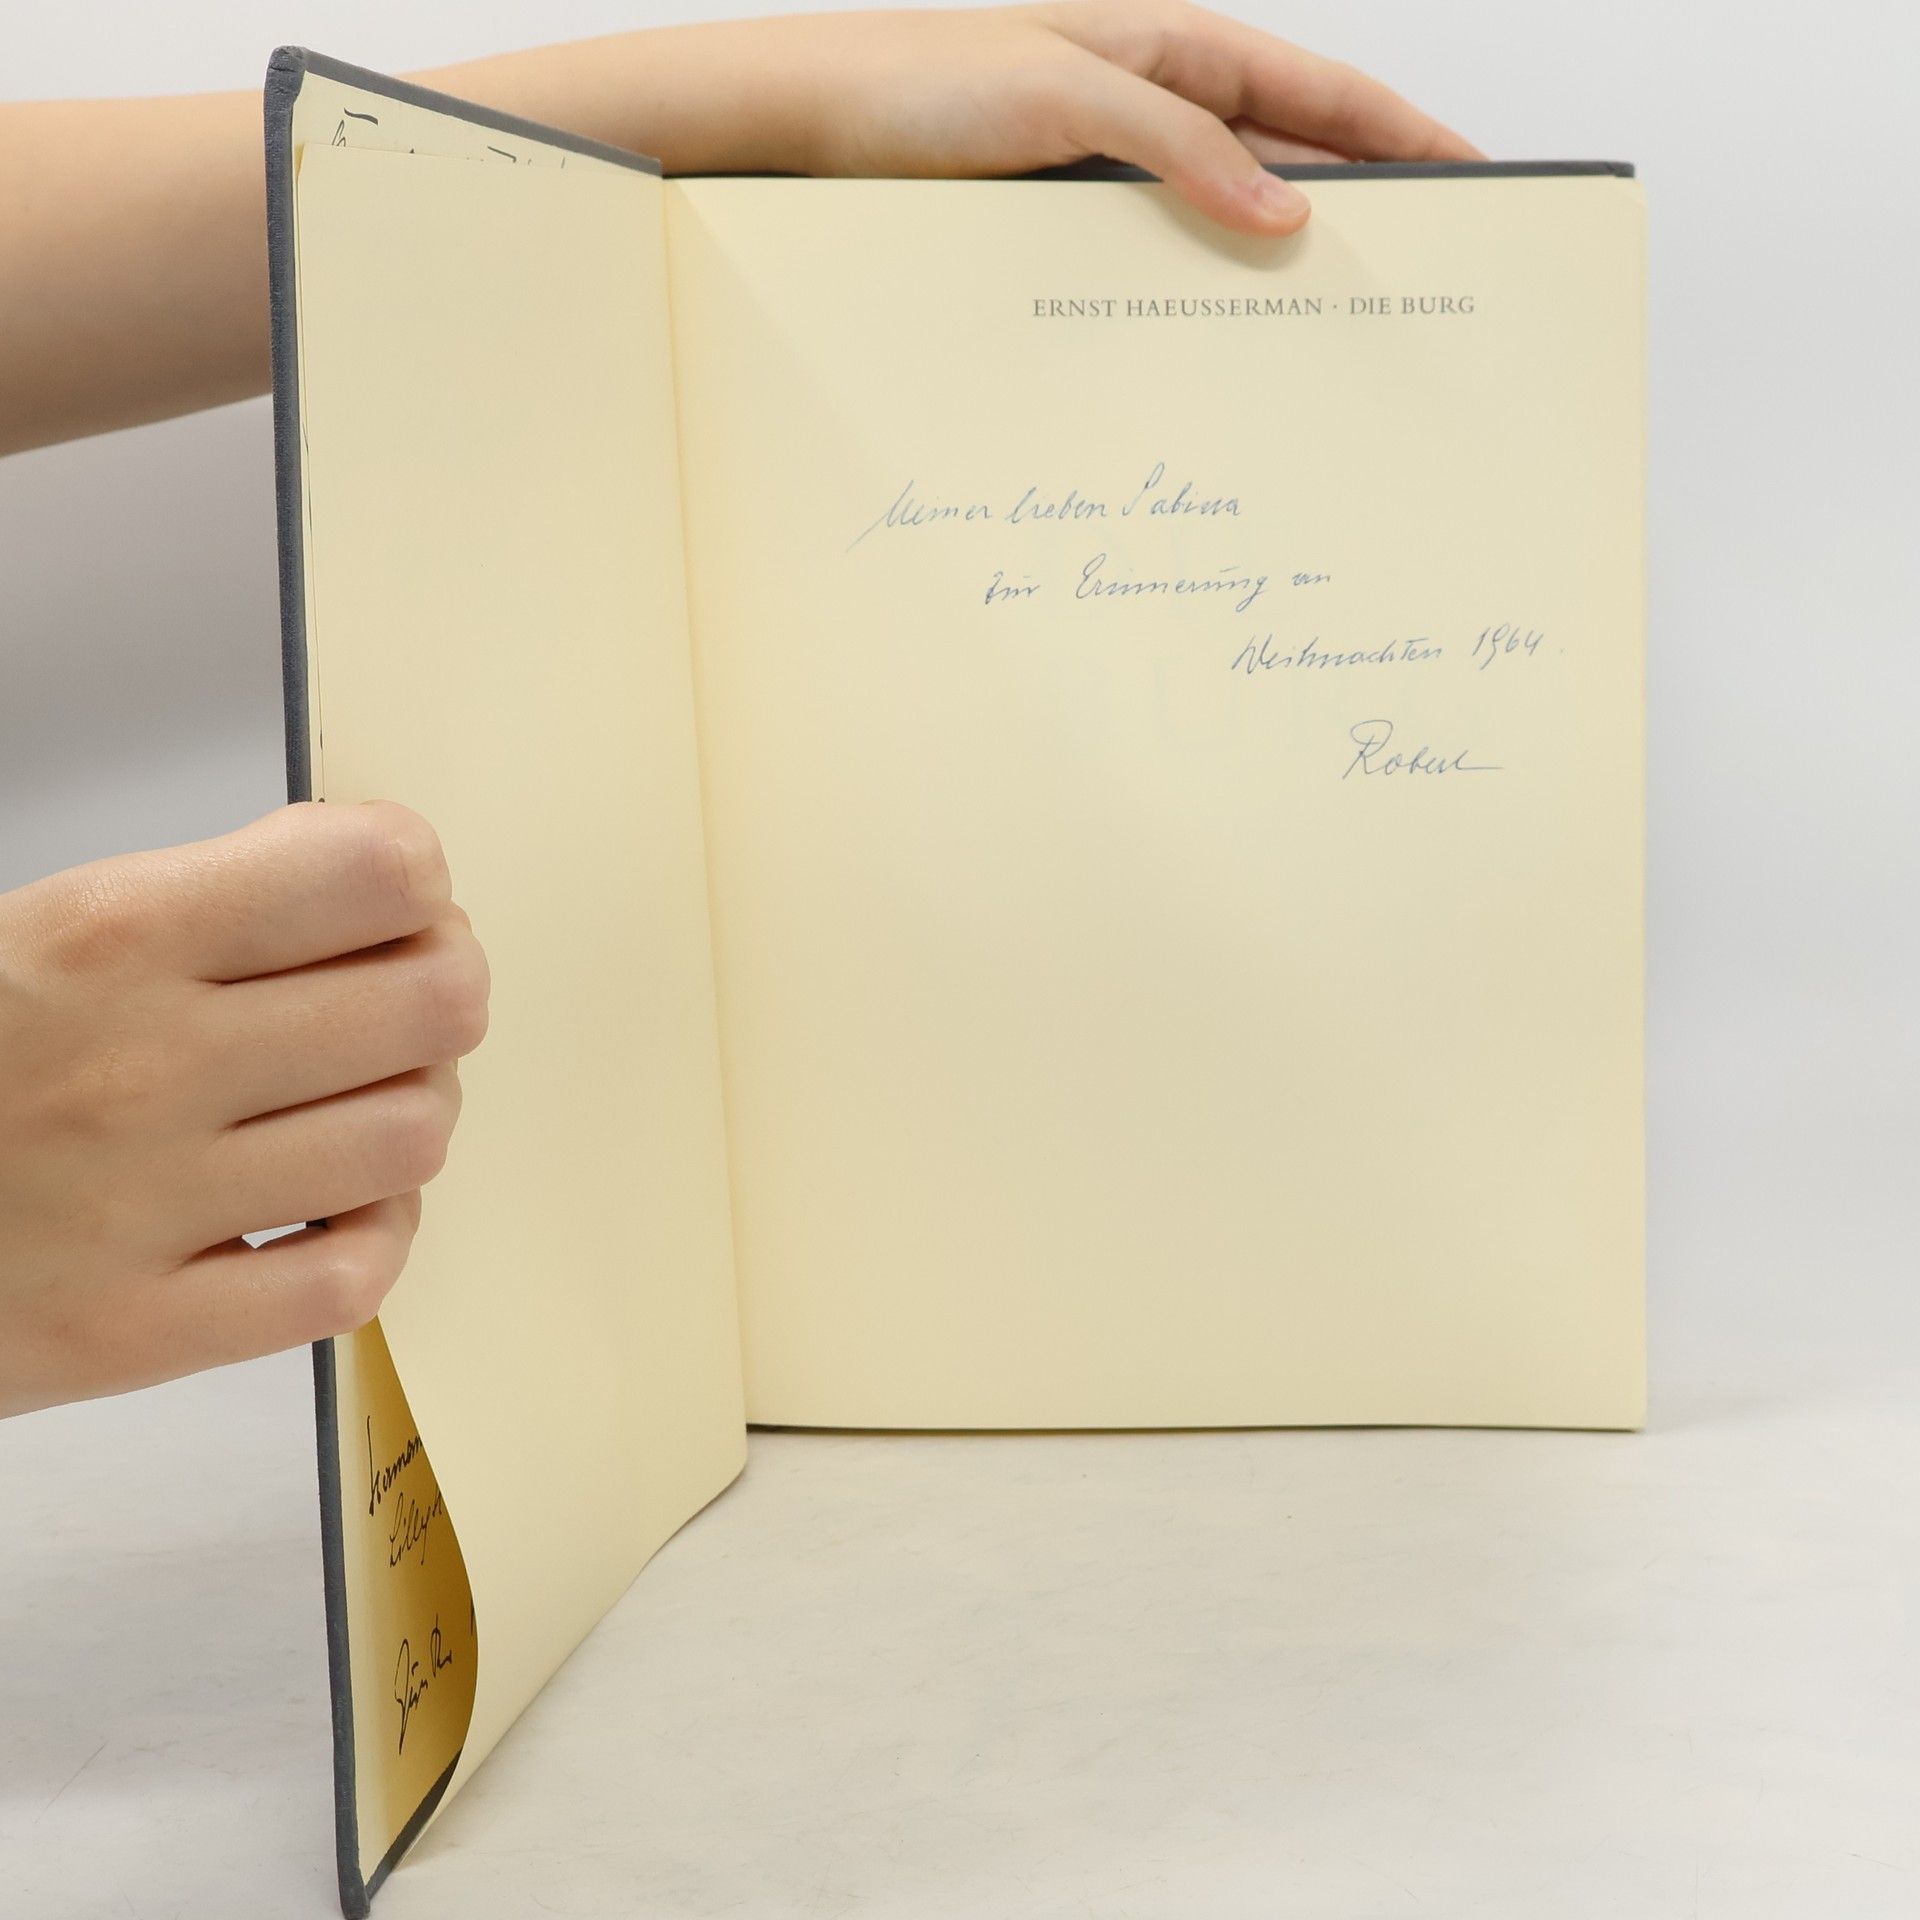 ERNST HAEUSSERMAN · DIE BURG
Meiner lieben Sabina
zur Erinnerung an
Weihnachten 1964.
Robert
Lilly